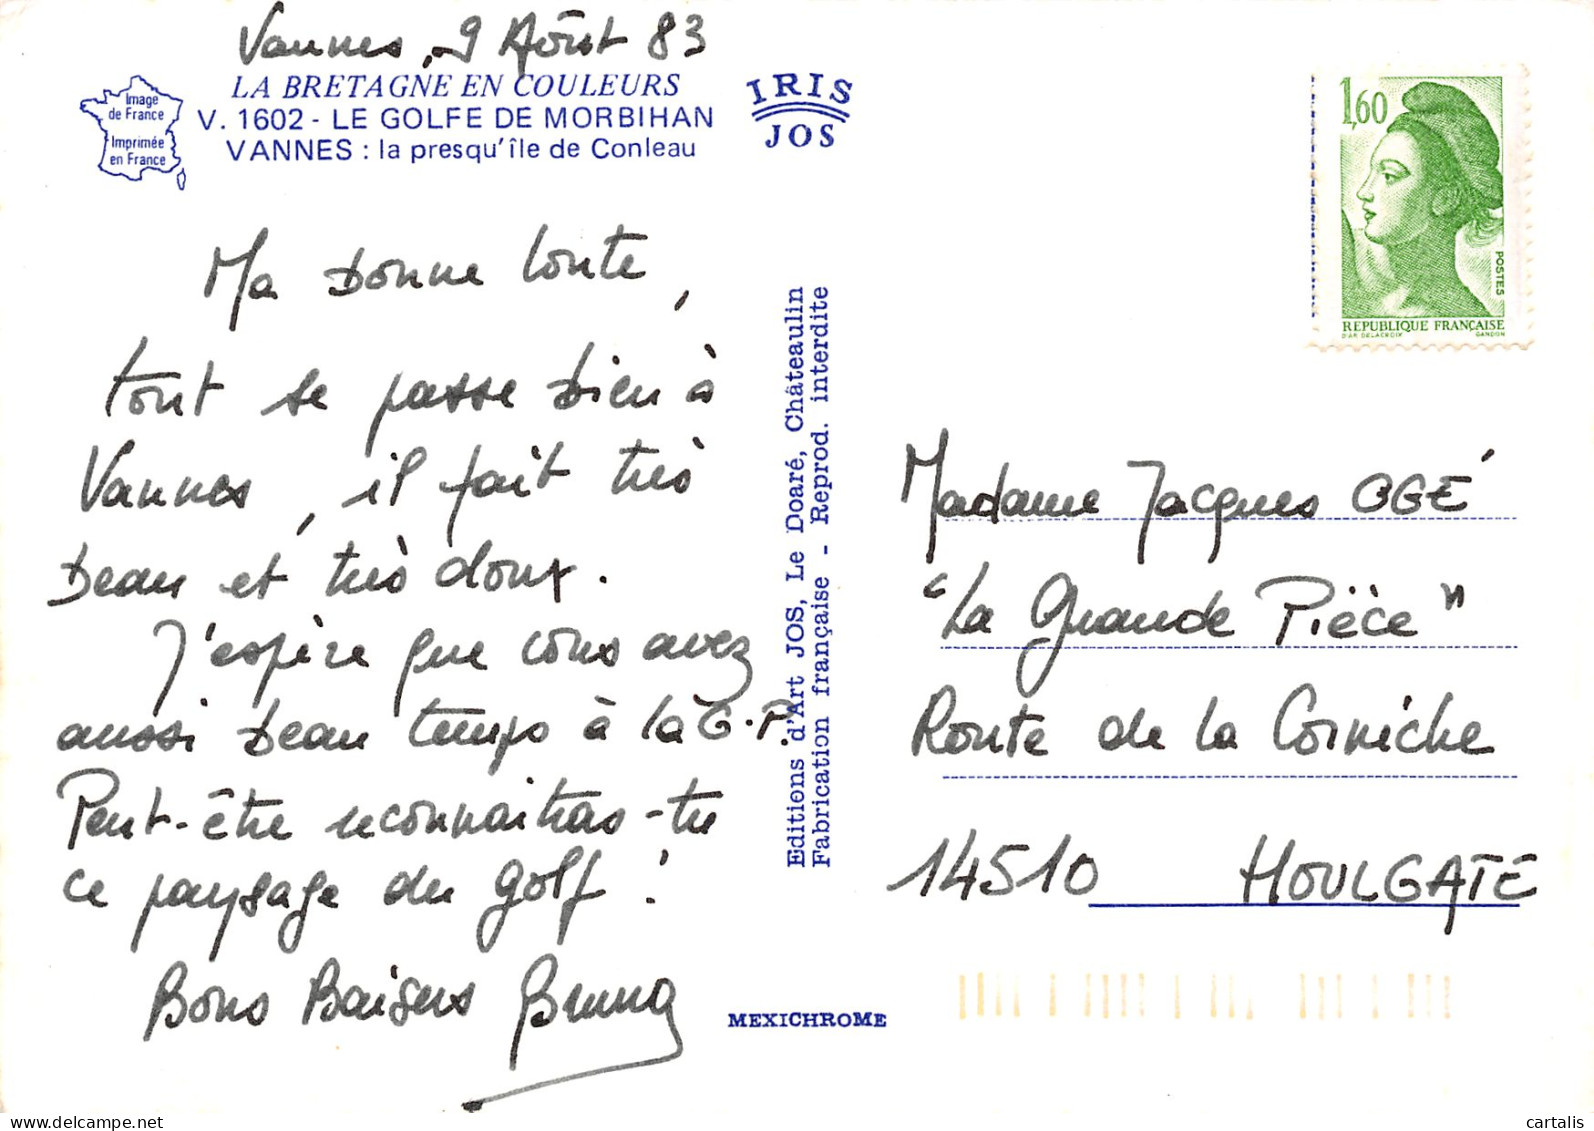 Vannes, 9 Août 83
LA BRETAGNE EN COULEURS
V. 1602 - LE GOLFE DE MORBIHAN
VANNES : la presqu'île de Conleau
Image
de France
Imprimée
en France
IRIS
JOS
Ma bonne
tout se passe bien à
Vannes, il fait très
beau et très doux.
J'espère que vous avez
aussi beau temps à la G.P.
Peut-être reconnaitras-tu
ce paysage du golf !
Bons Baisers Bruno
Editions d'Art JOS, Le Doaré, Châteaulin
Fabrication française - Reprod. interdite
MEXICHROME
1,60
POSTES
REPUBLIQUE FRANÇAISE
D'AP. DELACROIX GANDON
Madame Jacques OGÉ
"La Grande Pièce"
Route de la Corniche
14510 HOULGATE
delcampe.net
cartalis